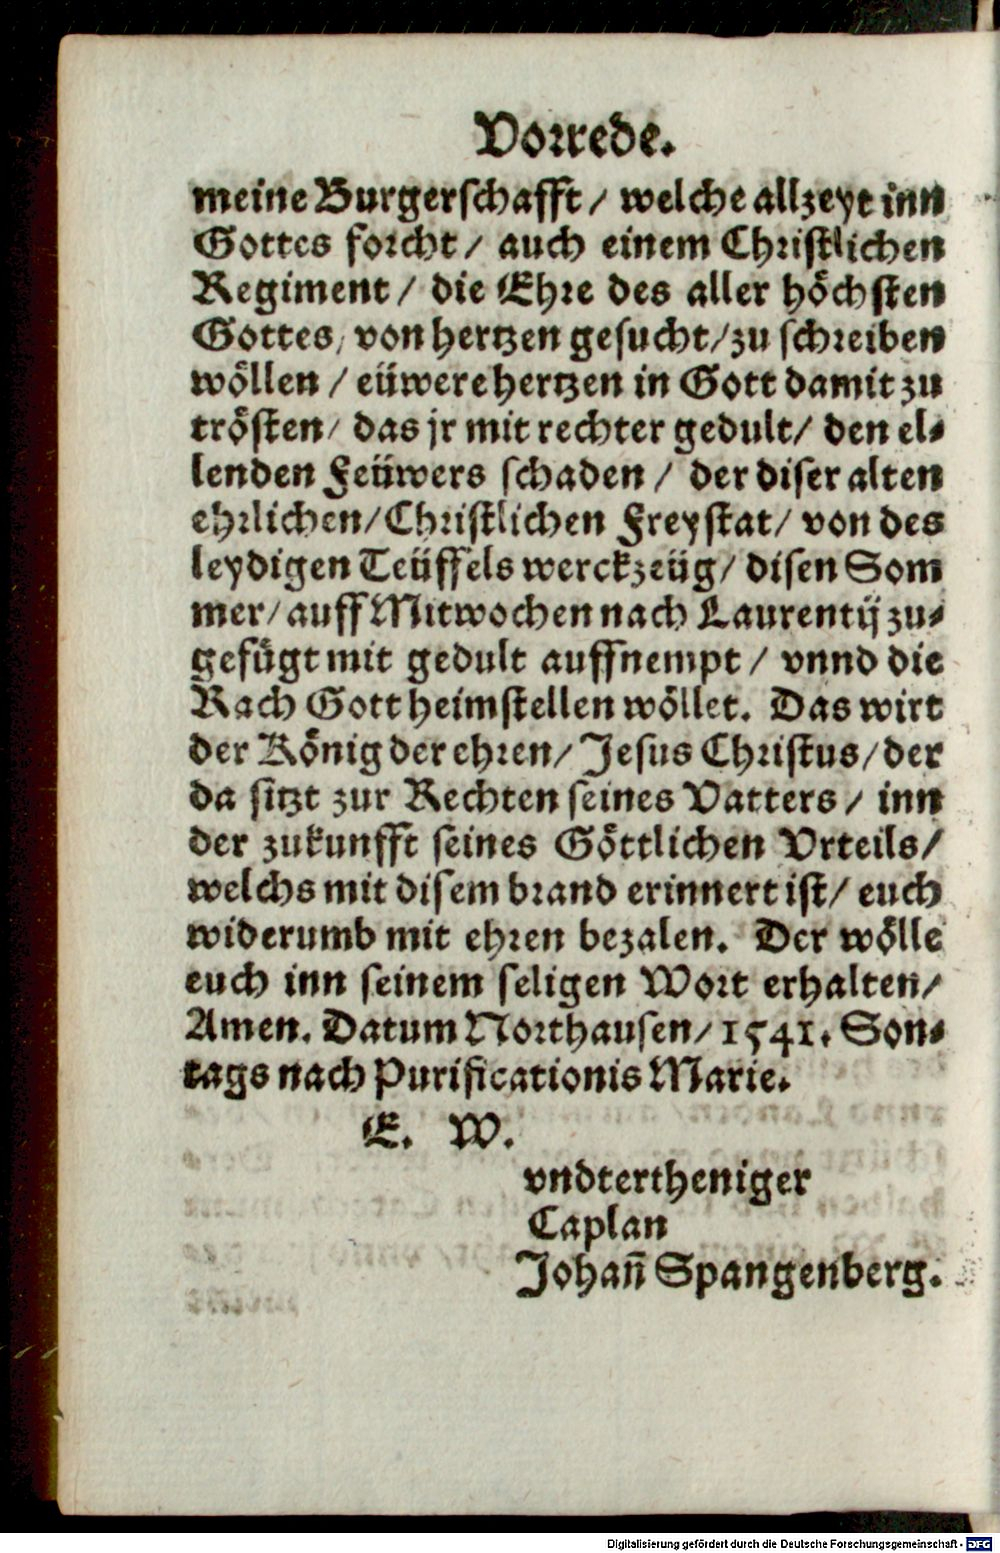 Vorrede.
meine Burgerschafft / welche allzeyt inn
Gottes forcht / auch einem Christlichen
Regiment / die Ehre des aller höchsten
Gottes, von hertzen gesucht / zu schreiben
wöllen / eüwere hertzen in Gott damit zu
trösten / das jr mit rechter gedult / den el⸗
lenden Feüwers schaden / der diser alten
ehrlichen / Christlichen Freystat / von des
leydigen Teüffels werckzeüg / disen Som
mer / auff Mitwochen nach Laurentij zu⸗
gefügt mit gedult auffnempt / vnnd die
Rach Gott heimstellen wöllet. Das wirt
der König der ehren / Jesus Christus / der
da sitzt zur Rechten seines Vatters / inn
der zukunfft seines Göttlichen Vrteils /
welchs mit disem brand erinnert ist / euch
widerumb mit ehren bezalen. Der wölle
euch inn seinem seligen Wort erhalten /
Amen. Datum Northausen / 1541. Son⸗
tags nach Purificationis Marie.
E. W.
vndtertheniger
Caplan
Johañ Spangenberg.
Digitalisierung gefördert durch die Deutsche Forschungsgemeinschaft - DFG